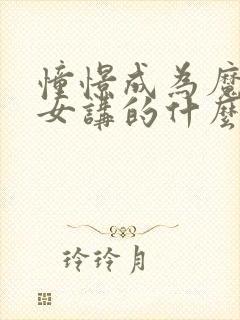 憧憬成為魔
女講的什麼
玲玲月